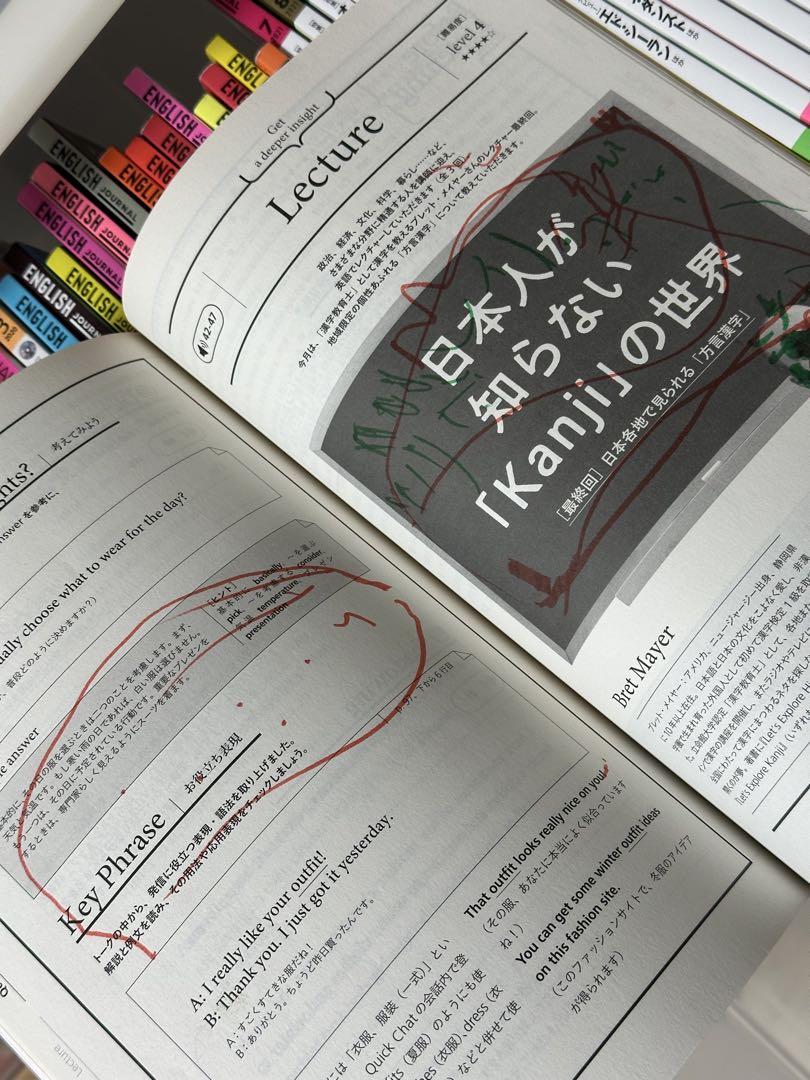 ENGLISH
ENGLISH
ENGLISH
JOURNAL
ENGLISH
JOURNAL
ENGLISH
JOURNAL
ENGLISH
エド・シーラン ほか
Get
a deeper insight
Lecture
[難易度]
level 4
★★★★☆
42-47
政治、経済、文化、科学、暮らし……など、
さまざまな分野に精通する人を講師に迎え、
英語でレクチャーしていただきます（全3回）。
今月は、「漢字教育士」として漢字を教えるブレット・メイヤーさんのレクチャー最終回。
地域限定の個性あふれる「方言漢字」について教えていただきます。
日本人が
知らない
「Kanji」の世界
［最終回］日本各地で見られる「方言漢字」
Bret Mayer
ブレット・メイヤー：アメリカ、ニュージャージー出身、静岡県
に10年以上在住。日本語と日本の文化をこよなく愛し、非漢
字圏で生まれ育った外国人として初めて漢字検定1級を取
「Let's Explore
考えてみよう
answer を参考に、
ually choose what to wear for the day?
、普段どのように決めますか？）
［ヒント］
基本的に basically、～を選ぶ
pick、～を考慮する consider、
temperature、
presentation
answer
基本的に、その日の服を選ぶときは二つのことを考慮します。まず、
天気と気温です。もし寒い雨の日であれば、白い服は選びません。
もう一つは、その日に予定されている行動です。重要なプレゼンを
するときは、専門家らしく見えるようにスーツを着ます。
Key Phrase
お役立ち表現
トークの中から、発信に役立つ表現・語法を取り上げました。
解説と例文を読み、その用法や応用表現をチェックしましょう。
下から6行目
A: I really like your outfit!
B: Thank you. I just got it yesterday.
A：すごくすてきな服だね！
B：ありがとう。ちょうど昨日買ったんです。
は「衣服、服装（一式）」とい
Quick Chat の会話内で登
fits（夏服）のようにも使
hes（衣服）、dress（衣
）などと併せて使
That outfit looks really nice on you.
（その服、あなたに本当によく似合っています
ね！）
You can get some winter outfit ideas
on this fashion site.
（このファッションサイトで、冬服のアイデア
が得られます）
Lecture